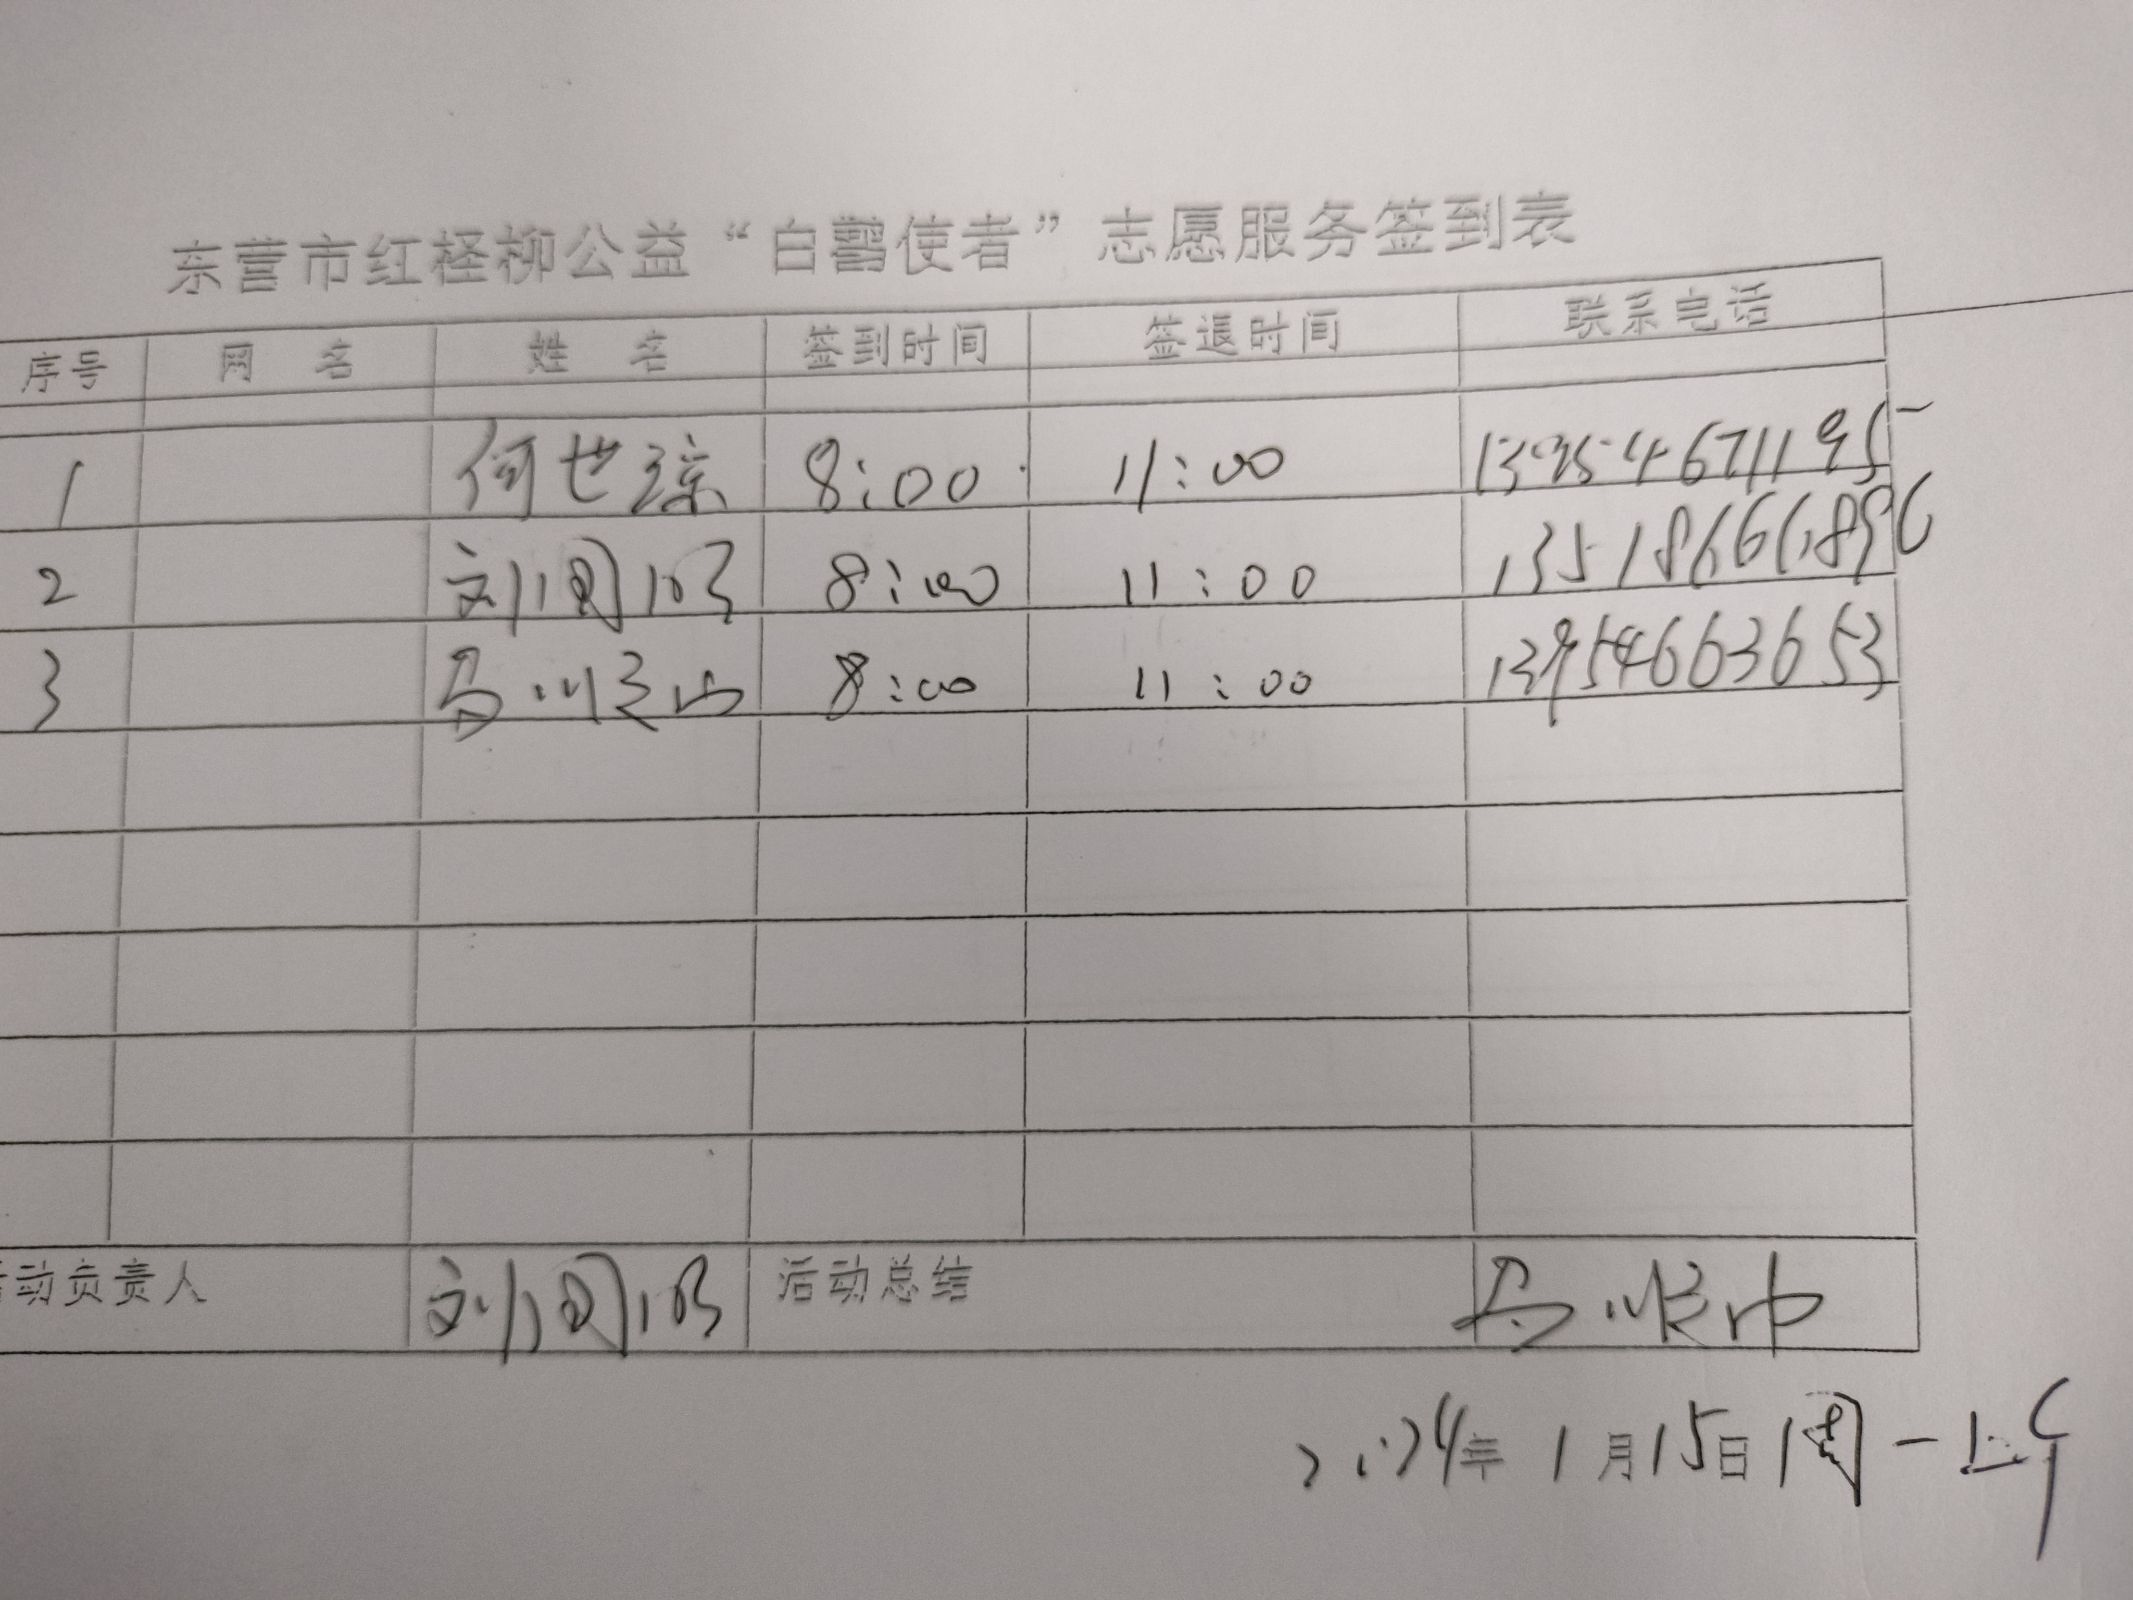 东营市红柽柳公益“白鹳使者”志愿服务签到表
序号 网 名 姓 名 签到时间 签退时间 联系电话
1 何世琼 8:00 11:00
2 刘国明 8:00 11:00 13518666896
3 马顺山 8:00 11:00 13954663653
动负责人 刘国明 活动总结 马顺山
2024年1月15日周一上午